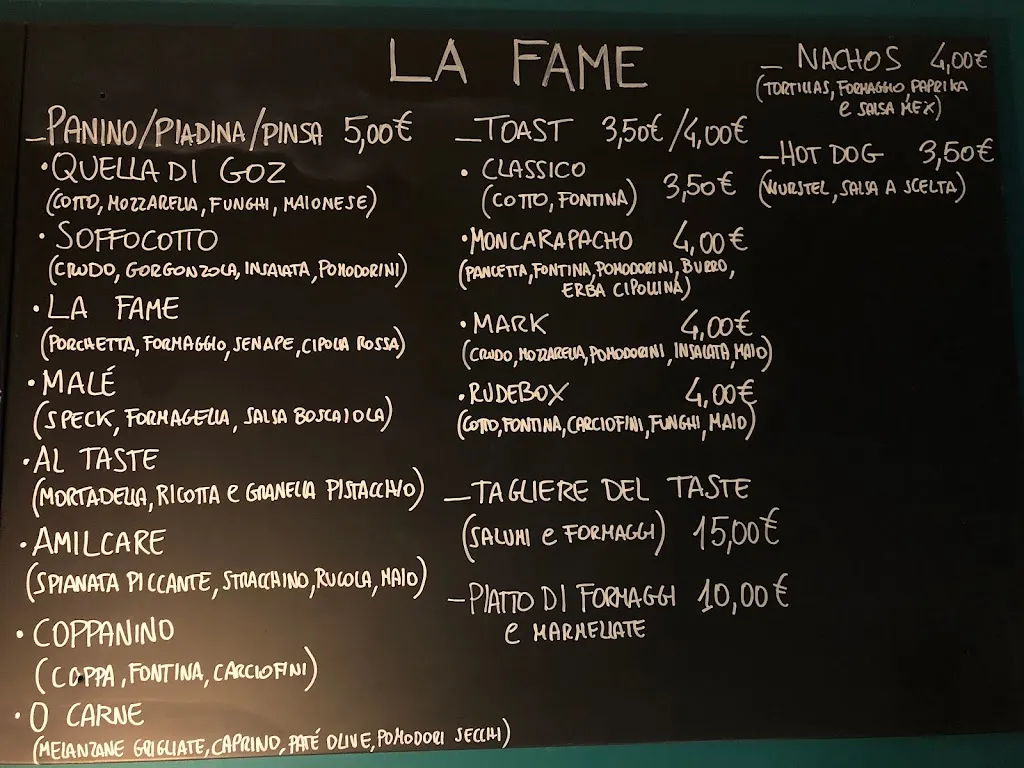 LA FAME
_ PANINO/PIADINA/PINSA 5,00€
• QUELLA DI GOZ
(COTTO, MOZZARELLA, FUNGHI, MAIONESE)
• SOFFOCOTTO
(CRUDO, GORGONZOLA, INSALATA, POMODORINI)
• LA FAME
(PORCHETTA, FORMAGGIO, SENAPE, CIPOLLA ROSSA)
• MALÉ
(SPECK, FORMAGELLA, SALSA BOSCAIOLA)
• AL TASTE
(MORTADELLA, RICOTTA e GRANELLA PISTACCHIO)
• AMILCARE
(SPIANATA PICCANTE, STRACCHINO, RUCOLA, MAIO)
• COPPANINO
(COPPA, FONTINA, CARCIOFINI)
• O CARNE
(MELANZANE GRIGLIATE, CAPRINO, PATÉ OLIVE, POMODORI SECCHI)
_ TOAST 3,50€/4,00€
• CLASSICO
(COTTO, FONTINA) 3,50€
• MONCARAPACHO 4,00€
(PANCETTA, FONTINA, POMODORINI, BURRO,
ERBA CIPOLLINA)
• MARK 4,00€
(CRUDO, MOZZARELLA, POMODORINI, INSALATA, MAIO)
• RUDEBOX 4,00€
(COTTO, FONTINA, CARCIOFINI, FUNGHI, MAIO)
_ TAGLIERE DEL TASTE
(SALUMI e FORMAGGI) 15,00€
_ PIATTO DI FORMAGGI 10,00€
e MARMELLATE
_ NACHOS 4,00€
(TORTILLAS, FORMAGGIO, PAPRIKA
e SALSA MEX)
_ HOT DOG 3,50€
(WURSTEL, SALSA A SCELTA)